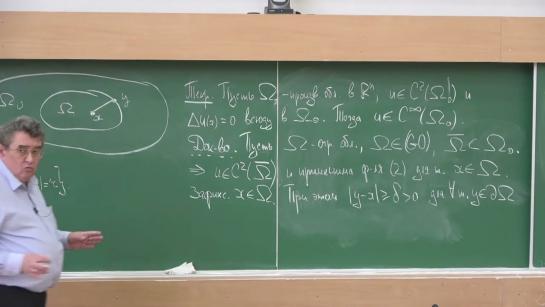 Ω₀
Ω
x
y
Теор. Пусть Ω₀-произв. обл. в ℝⁿ, u∈C²(Ω₀) и
Δu(x)=0 всюду в Ω₀. Тогда u∈C^∞(Ω₀).
Док-во. Пусть Ω-огр. обл., Ω∈ Ω̄⊂Ω₀.
⇒ u∈C²(Ω̄) и применима ф-ла (2) для т. x∈Ω.
Зафикс. x∈Ω. При этом |y-x|≥δ>0 для ∀ т. y∈∂Ω